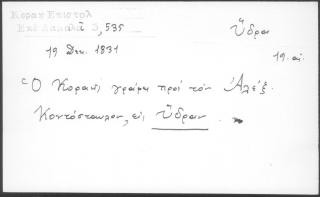 Κοραη Επιστολ
Εκδ Δαμαλᾶ 3, 535 Ὕδρα
19 Δεκ. 1831 19. αἰ.
Ὁ Κοραῆς γράφει πρὸς τὸν Ἀλέξ.
Κοντόσταυλον, εἰς Ὕδραν.